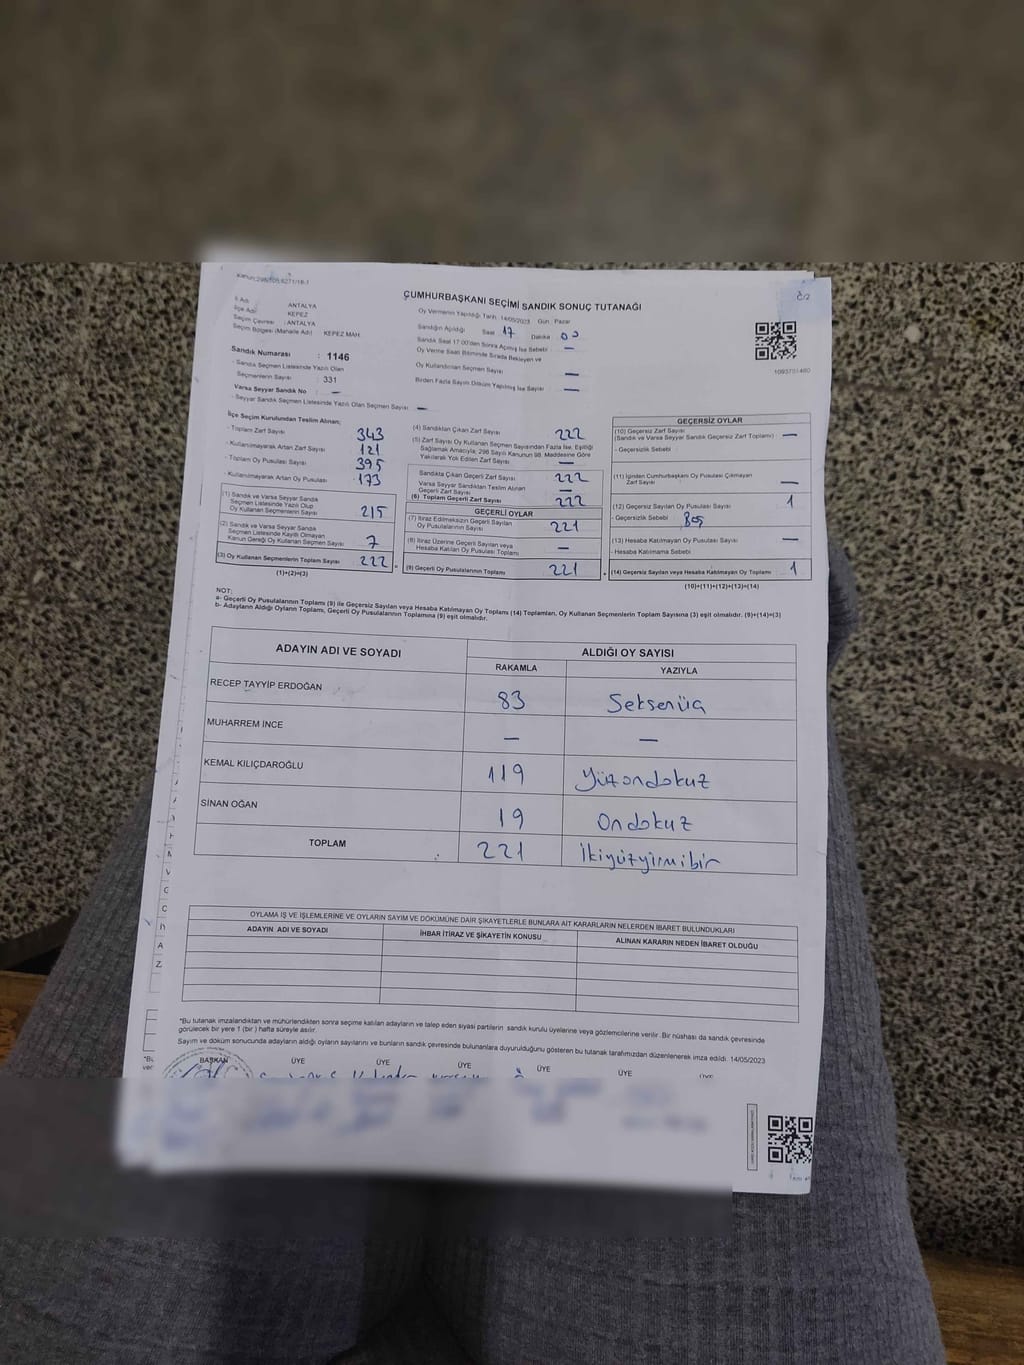 ÇUMHURBAŞKANI SEÇİMİ SANDIK SONUÇ TUTANAĞI
Ç/2
İl Adı : ANTALYA
İlçe Adı : KEPEZ
Seçim Çevresi : ANTALYA
Seçim Bölgesi (Mahalle Adı) : KEPEZ MAH.
Sandık Numarası : 1146
- Sandık Seçmen Listesinde Yazılı Olan
Seçmenlerin Sayısı : 331
Varsa Seyyar Sandık No : —
- Seyyar Sandık Seçmen Listesinde Yazılı Olan Seçmen Sayısı : —
Oy Vermenin Yapıldığı Tarih: 14/05/2023 Gün : Pazar
Sandığın Açıldığı Saat 17 Dakika
Sandık Saat 17.00'den Sonra Açılmış İse Sebebi —
Oy Verme Saati Bitiminde Sırada Bekleyen ve
Oy Kullandırılan Seçmen Sayısı —
Birden Fazla Sayım Döküm Yapılmış İse Sayısı —
1093751460
İlçe Seçim Kurulundan Teslim Alınan;
- Toplam Zarf Sayısı 343
- Kullanılmayarak Artan Zarf Sayısı 121
- Toplam Oy Pusulası Sayısı 395
- Kullanılmayarak Artan Oy Pusulası 173
(1) Sandık ve Varsa Seyyar Sandık
Seçmen Listesinde Yazılı Olup
Oy Kullanan Seçmenlerin Sayısı 215
(2) Sandık ve Varsa Seyyar Sandık
Seçmen Listesinde Kayıtlı Olmayan
Kanun Gereği Oy Kullanan Seçmen Sayısı 7
(3) Oy Kullanan Seçmenlerin Toplam Sayısı 222
(1)+(2)=(3)
(4) Sandıktan Çıkan Zarf Sayısı 222
(5) Zarf Sayısı Oy Kullanan Seçmen Sayısından Fazla İse, Eşitliği
Sağlamak Amacıyla; 298 Sayılı Kanunun 98. Maddesine Göre
Yakılarak Yok Edilen Zarf Sayısı —
Sandıkta Çıkan Geçerli Zarf Sayısı 222
Varsa Seyyar Sandıktan Teslim Alınan
Geçerli Zarf Sayısı —
(6) Toplam Geçerli Zarf Sayısı 222
GEÇERLİ OYLAR
(7) İtiraz Edilmeksizin Geçerli Sayılan
Oy Pusulalarının Sayısı 221
(8) İtiraz Üzerine Geçerli Sayılan veya
Hesaba Katılan Oy Pusulası Toplamı —
(9) Geçerli Oy Pusulalarının Toplamı 221
GEÇERSİZ OYLAR
(10) Geçersiz Zarf Sayısı
(Sandık ve Varsa Seyyar Sandık Geçersiz Zarf Toplamı) —
- Geçersizlik Sebebi
(11) İçinden Cumhurbaşkanı Oy Pusulası Çıkmayan
Zarf Sayısı —
(12) Geçersiz Sayılan Oy Pusulası Sayısı 1
- Geçersizlik Sebebi Boş
(13) Hesaba Katılmayan Oy Pusulası Sayısı —
- Hesaba Katılmama Sebebi
(14) Geçersiz Sayılan veya Hesaba Katılmayan Oy Toplamı 1
(10)+(11)+(12)+(13)=(14)
NOT:
a- Geçerli Oy Pusulalarının Toplamı (9) ile Geçersiz Sayılan veya Hesaba Katılmayan Oy Toplamı (14) Toplamları, Oy Kullanan Seçmenlerin Toplam Sayısına (3) eşit olmalıdır. (9)+(14)=(3)
b- Adayların Aldığı Oyların Toplamı, Geçerli Oy Pusulalarının Toplamına (9) eşit olmalıdır.
ADAYIN ADI VE SOYADI ALDIĞI OY SAYISI
RAKAMLA YAZIYLA
RECEP TAYYİP ERDOĞAN 83 Seksenüç
MUHARREM İNCE — —
KEMAL KILIÇDAROĞLU 119 Yüzondokuz
SİNAN OĞAN 19 Ondokuz
TOPLAM 221 İkiyüzyirmibir
OYLAMA İŞ VE İŞLEMLERİNE VE OYLARIN SAYIM VE DÖKÜMÜNE DAİR ŞİKAYETLERLE BUNLARA AİT KARARLARIN NELERDEN İBARET BULUNDUKLARI
ADAYIN ADI VE SOYADI İHBAR İTİRAZ VE ŞİKAYETİN KONUSU ALINAN KARARIN NEDEN İBARET OLDUĞU
*Bu tutanak imzalandıktan ve mühürlendikten sonra seçime katılan adayların ve talep eden siyasi partilerin sandık kurulu üyelerine veya gözlemcilerine verilir. Bir nüshası da sandık çevresinde
görülecek bir yere 1 (bir) hafta süreyle asılır.
Sayım ve döküm sonucunda adayların aldığı oyların sayılarını ve bunların sandık çevresinde bulunanlara duyurulduğunu gösteren bu tutanak tarafımızdan düzenlenerek imza edildi. 14/05/2023
BAŞKAN ÜYE ÜYE ÜYE ÜYE ÜYE ÜYE